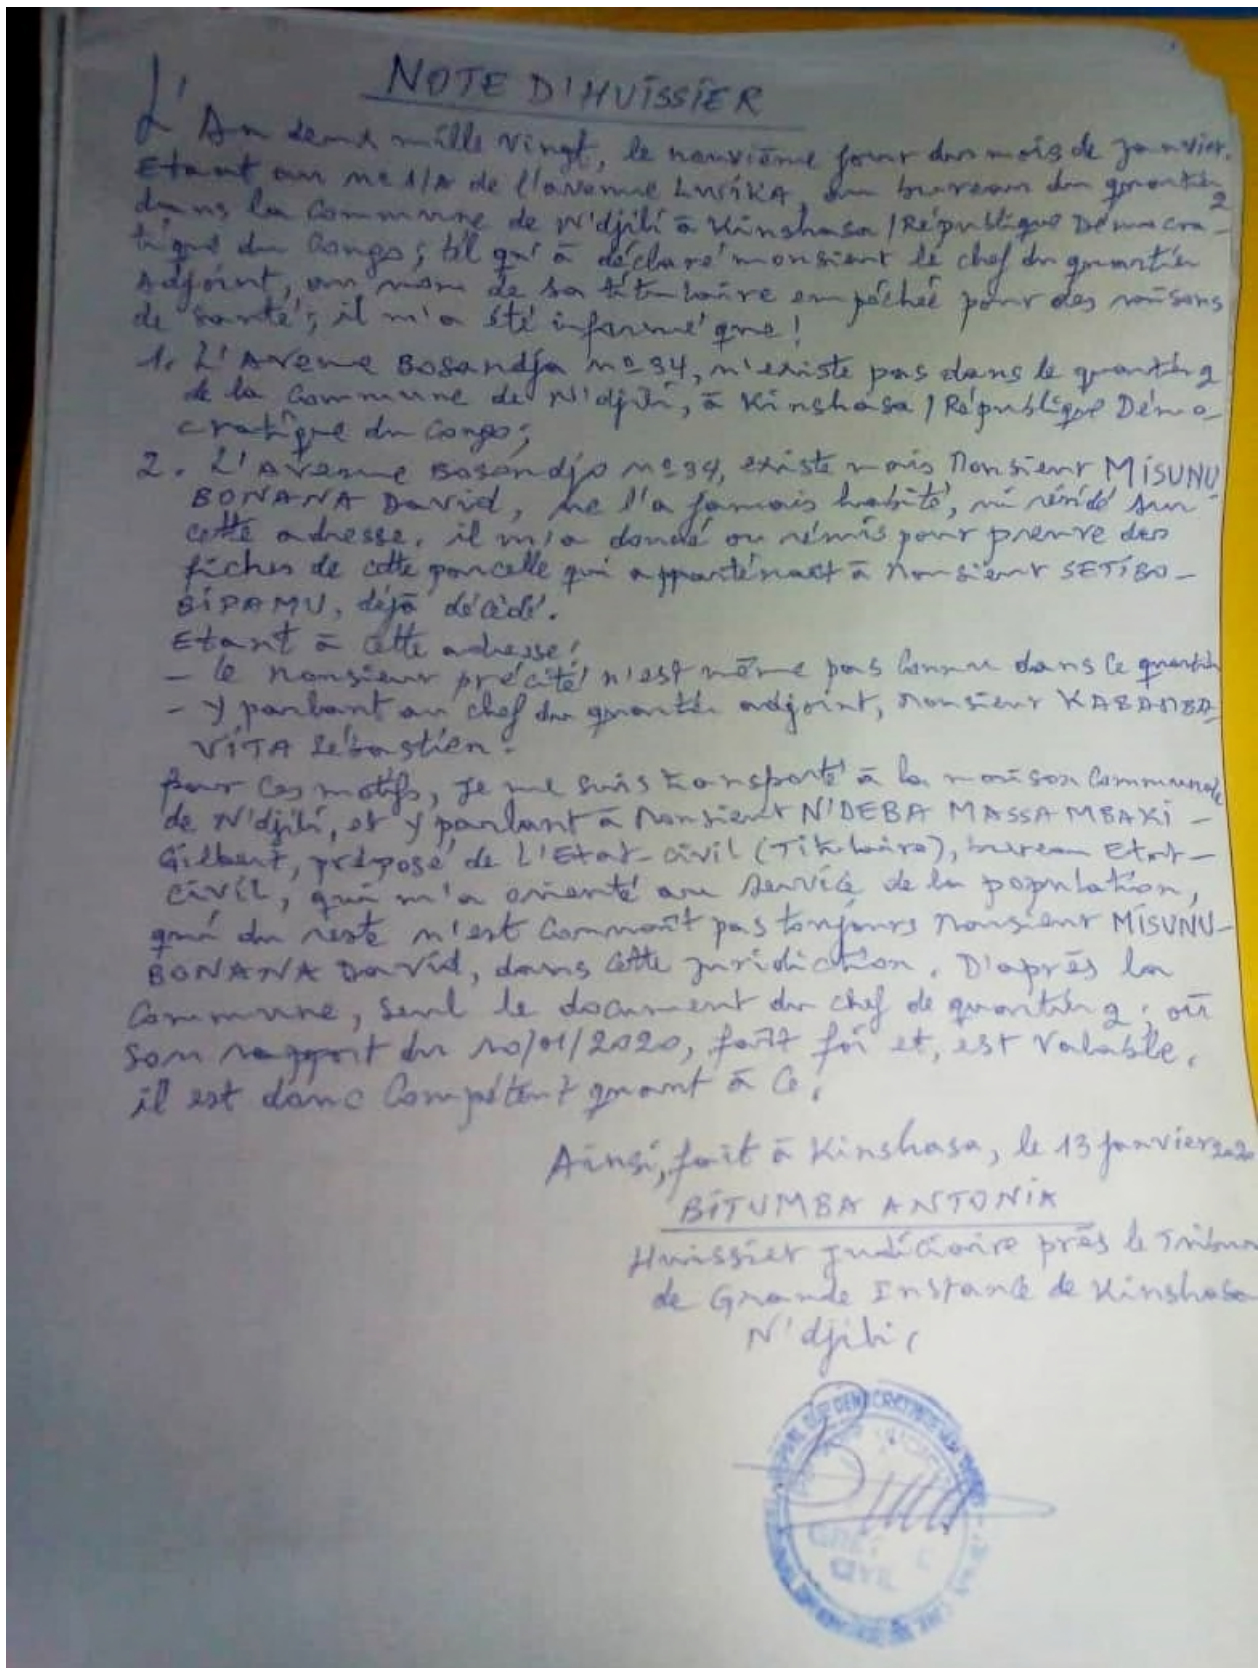 NOTE D'HUISSIER
L'An deux mille vingt, le neuvième jour du mois de janvier.
Etant au n° 1/A de l'avenue LUSIKA, au bureau du quartier 2
dans la Commune de N'djili à Kinshasa / République Démocra-
tique du Congo; tel qu'à déclaré monsieur le chef du quartier
Adjoint, au nom de sa titulaire empéchée pour des raisons
de santé; il m'a été informé que!
1. L'Avenue Bosandja n° 34, n'existe pas dans le quartier 2
de la Commune de N'djili, à Kinshasa / République Démo-
cratique du Congo;
2. L'Avenue Bosandjo n° 34, existe mais Monsieur MISUNU
BONANA David, ne l'a jamais habité, ni résidé sur
cette adresse. il m'a donné ou rémis pour preuve des
fiches de cette parcelle qui appartenait à Monsieur SETIBO-
BIPAMU, déjà décédé.
Etant à cette adresse!
- le Monsieur précité n'est même pas connu dans ce quartier
- y parlant au chef du quartier adjoint, Monsieur KABAMBA
VITA Sébastien.
Pour ces motifs, je me suis transporté à la maison Communale
de N'djili, et y parlant à Monsieur N'DEBA MASSAMBAKI -
Gilbert, préposé de L'Etat-civil (Titulaire), bureau Etat-
civil, qui m'a orienté au service de la population,
qui du reste n'est Connaît pas toujours Monsieur MISUNU-
BONANA David, dans cette juridiction. D'après la
Commune, seul le document du chef de quartier 2, où
son rapport du 10/01/2020, fait foi et, est valable.
il est donc Compétent quant à ce.
Ainsi, fait à Kinshasa, le 13 janvier 2020
BITUMBA ANTONIA
Huissier judiciaire près le Tribun
de Grande Instance de Kinshasa
N'djili
CIVIL